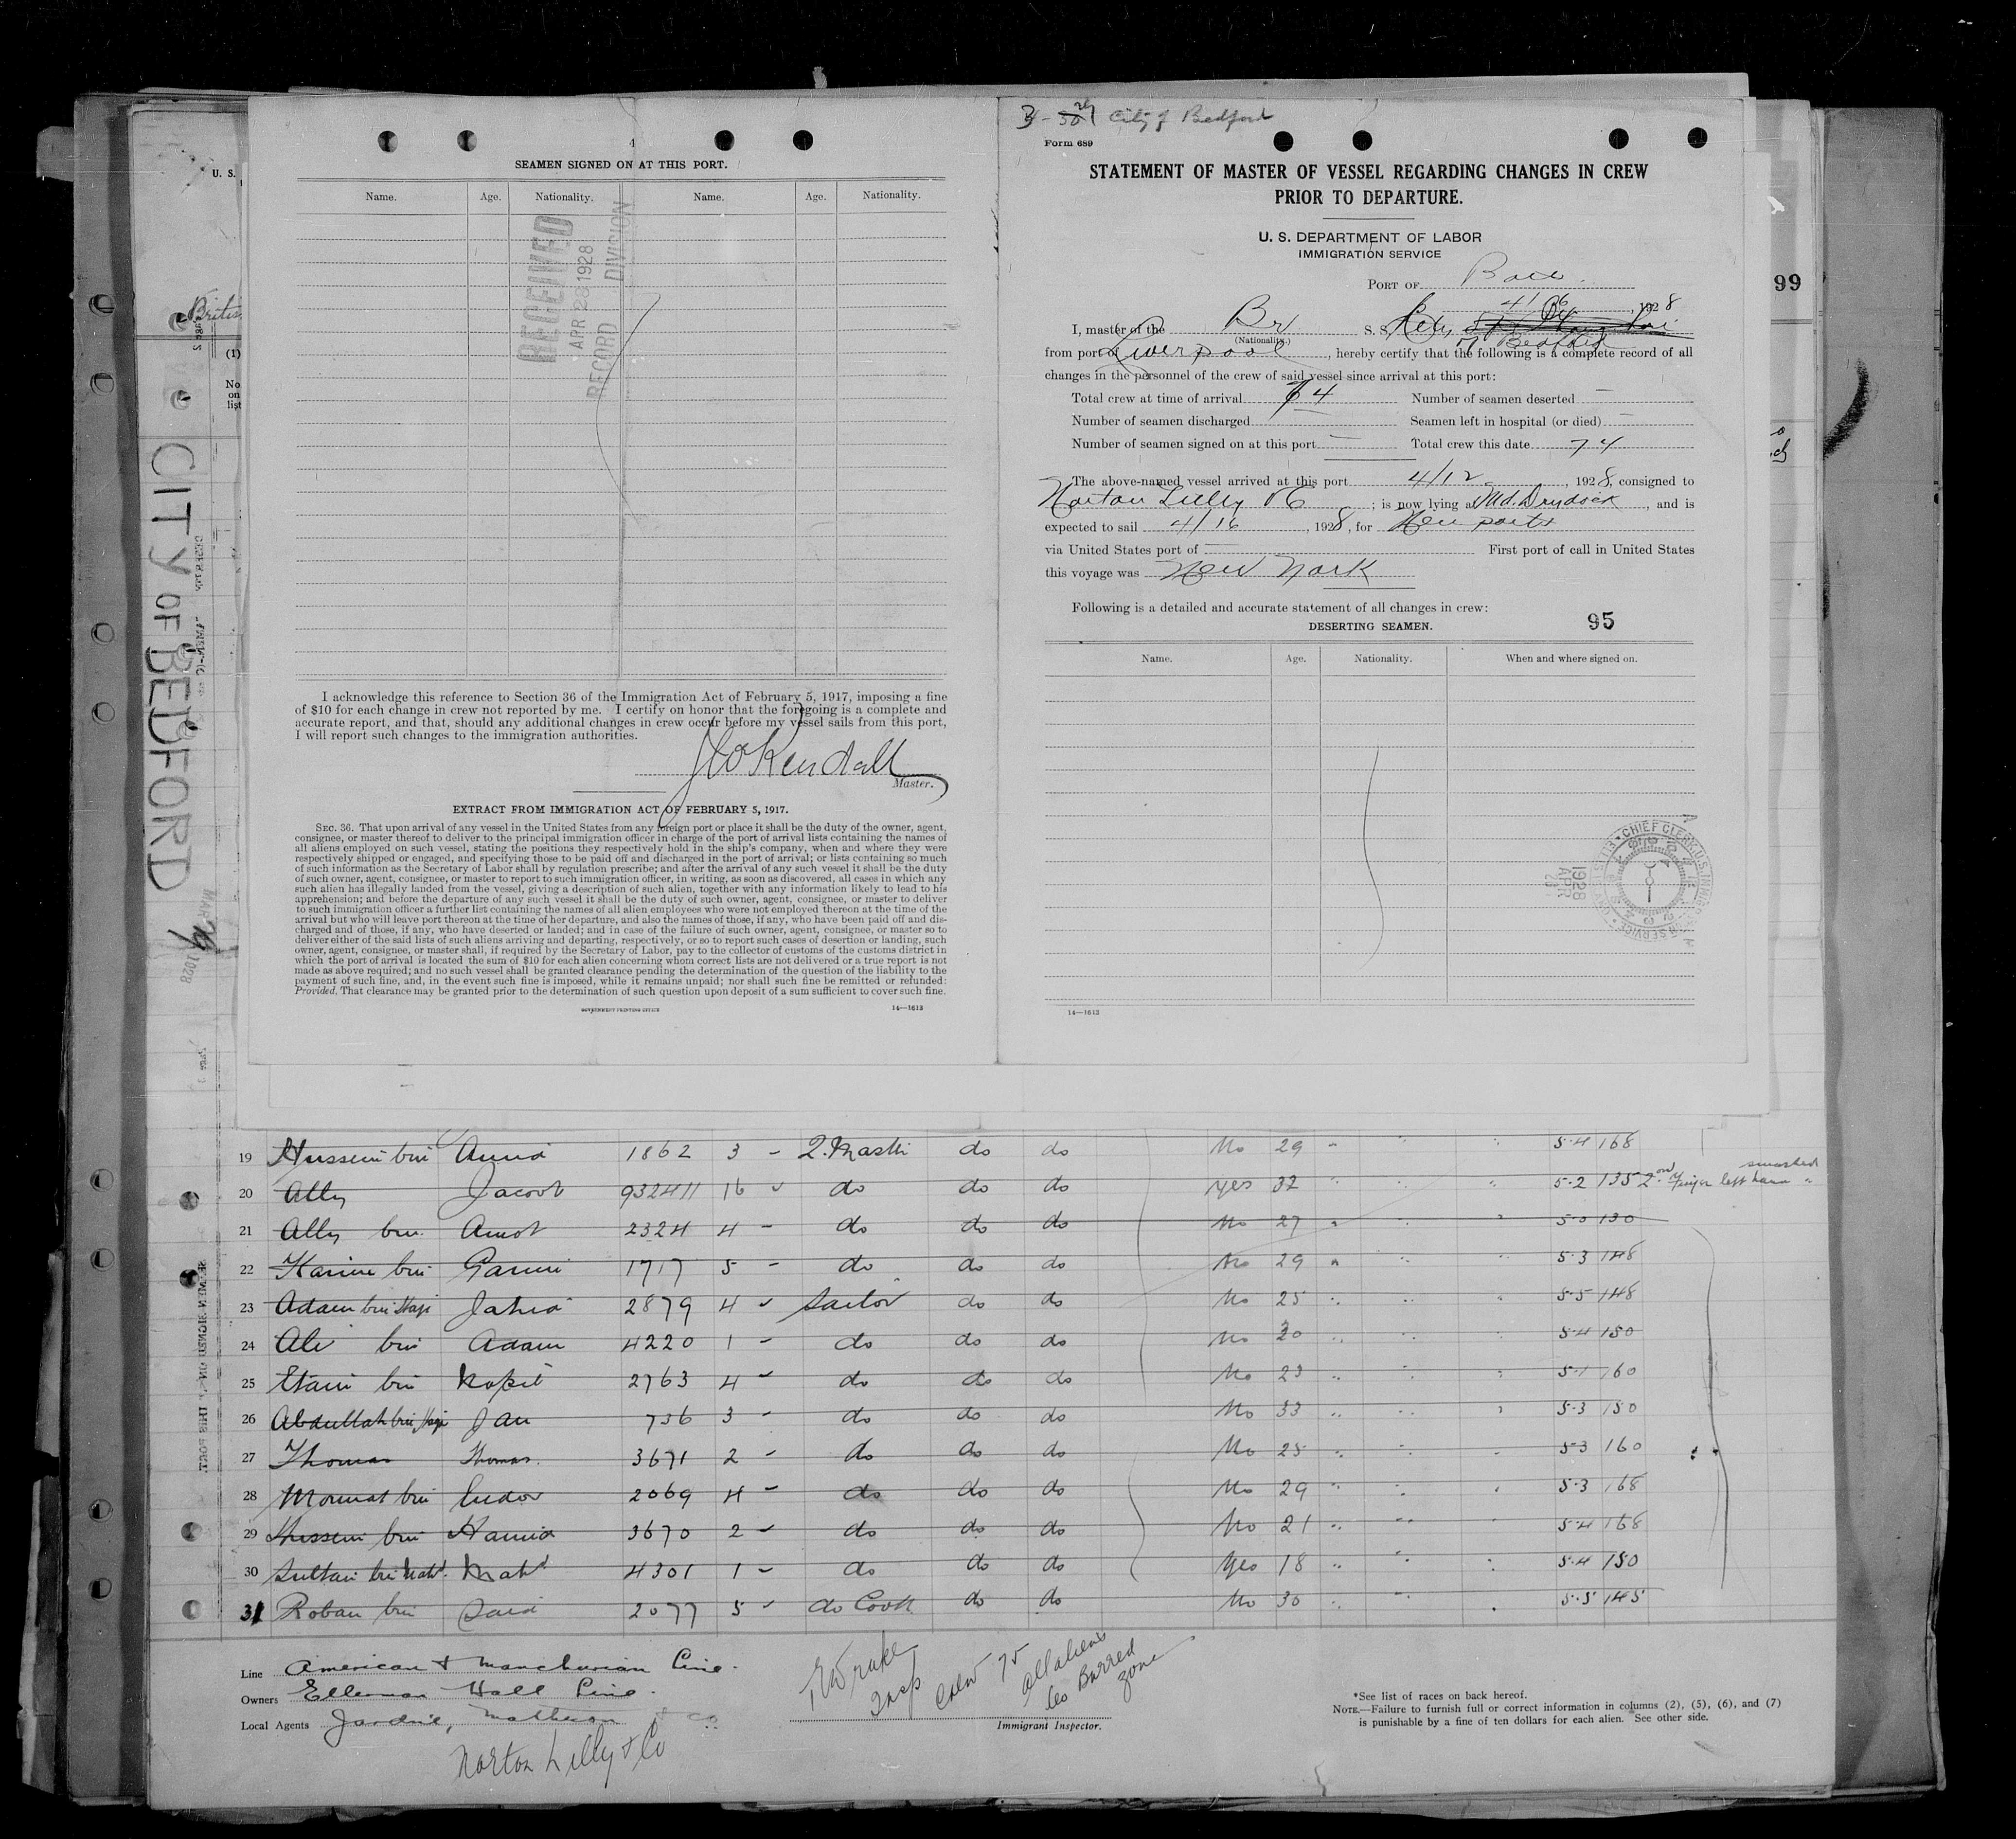 4
SEAMEN SIGNED ON AT THIS PORT.
Name. Age. Nationality. Name. Age. Nationality.
RECEIVED
APR 28 1928
RECORD DIVISION
I acknowledge this reference to Section 36 of the Immigration Act of February 5, 1917, imposing a fine
of $10 for each change in crew not reported by me. I certify on honor that the foregoing is a complete and
accurate report, and that, should any additional changes in crew occur before my vessel sails from this port,
I will report such changes to the immigration authorities.
Kendall
Master.
EXTRACT FROM IMMIGRATION ACT OF FEBRUARY 5, 1917.
SEC. 36. That upon arrival of any vessel in the United States from any foreign port or place it shall be the duty of the owner, agent,
consignee, or master thereof to deliver to the principal immigration officer in charge of the port of arrival lists containing the names of
all aliens employed on such vessel, stating the positions they respectively hold in the ship's company, when and where they were
respectively shipped or engaged, and specifying those to be paid off and discharged in the port of arrival; or lists containing so much
of such information as the Secretary of Labor shall by regulation prescribe; and after the arrival of any such vessel it shall be the duty
of such owner, agent, consignee, or master to report to such immigration officer, in writing, as soon as discovered, all cases in which any
such alien has illegally landed from the vessel, giving a description of such alien, together with any information likely to lead to his
apprehension; and before the departure of any such vessel it shall be the duty of such owner, agent, consignee, or master to deliver
to such immigration officer a further list containing the names of all alien employees who were not employed thereon at the time of the
arrival but who will leave port thereon at the time of her departure, and also the names of those, if any, who have been paid off and dis-
charged and of those, if any, who have deserted or landed; and in case of the failure of such owner, agent, consignee, or master so to
deliver either of the said lists of such aliens arriving and departing, respectively, or so to report such cases of desertion or landing, such
owner, agent, consignee, or master shall, if required by the Secretary of Labor, pay to the collector of customs of the customs district in
which the port of arrival is located the sum of $10 for each alien concerning whom correct lists are not delivered or a true report is not
made as above required; and no such vessel shall be granted clearance pending the determination of the question of the liability to the
payment of such fine, and, in the event such fine is imposed, while it remains unpaid; nor shall such fine be remitted or refunded:
Provided, That clearance may be granted prior to the determination of such question upon deposit of a sum sufficient to cover such fine.
GOVERNMENT PRINTING OFFICE 14—1613
City of Bedford
Form 689
STATEMENT OF MASTER OF VESSEL REGARDING CHANGES IN CREW
PRIOR TO DEPARTURE.
U. S. DEPARTMENT OF LABOR
IMMIGRATION SERVICE
PORT OF
4/16, 1928
I, master of the Br S. S. City of Bedford
(Nationality.)
from port of Liverpool, hereby certify that the following is a complete record of all
changes in the personnel of the crew of said vessel since arrival at this port:
Total crew at time of arrival 74 Number of seamen deserted —
Number of seamen discharged Seamen left in hospital (or died) —
Number of seamen signed on at this port — Total crew this date 74
The above-named vessel arrived at this port 4/12, 1928, consigned to
Norton Lilly & C; is now lying at Md. Drydock, and is
expected to sail 4/16, 1928, for
via United States port of — First port of call in United States
this voyage was New York
Following is a detailed and accurate statement of all changes in crew:
DESERTING SEAMEN. 95
Name. Age. Nationality. When and where signed on.
CHIEF CLERK, U.S. IMMIGRATION SERVICE
1928
APR
14—1613
99
U. S.
(1)
No
on
list
CITY OF BEDFORD
MAR 1928
19 Hussein bin 1862 3 - do do No 29 5-4 168
20 Ally Jacob 932411 16 do do do Yes 32 5-2 135 2nd finger left hand smashed
21 Ally bin 2324 4 - do do do No 27 5-0 130
22 Karim bin 1717 5 - do do do No 29 5-3 148
23 Adam bin Haji 2879 4 Sailor do do No 25 5-5 148
24 Ali bin Adam 4220 1 - do do do No 20 5-4 150
25 Etam bin 2763 4 do do do No 23 5-1 160
26 Abdullah bin Haji Jan 736 3 - do do do No 33 5-3 150
27 Thomas Thomas. 3671 2 - do do do No 25 5-3 160
28 bin 2069 4 - do do do No 29 5-3 168
29 Hussein bin Hamid 3670 2 do do do No 21 5-4 168
30 Sultan bin Mahd. Mahd 4301 1 - do do do Yes 18 5-4 150
31 Roban bin Said 2077 5 do Cook do do No 30 5-5 145
Line American & Manchurian Line.
Owners Ellerman Hall Line.
Local Agents Jardine, Matheson & Co.
Norton Lilly & Co
Insp
Crew 75
all aliens
60 Barred
zone
Immigrant Inspector.
*See list of races on back hereof.
NOTE.—Failure to furnish full or correct information in columns (2), (5), (6), and (7)
is punishable by a fine of ten dollars for each alien. See other side.